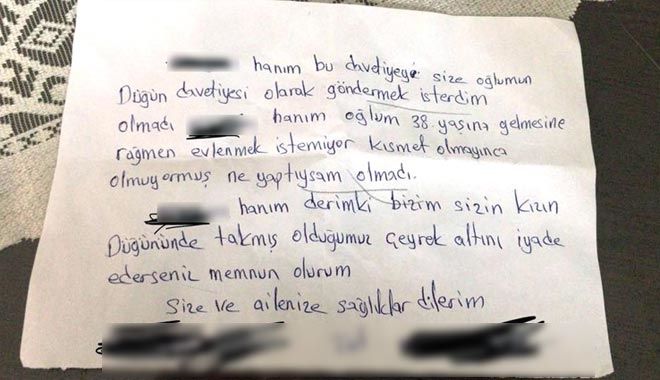 hanım bu davetiyeyi size oğlumun
Düğün davetiyesi olarak göndermek isterdim
olmadı hanım oğlum 38 yaşına gelmesine
rağmen evlenmek istemiyor kısmet olmayınca
olmuyormuş ne yaptıysam olmadı.
hanım derimki bizim sizin kızın
Düğününde takmış olduğumuz çeyrek altını iyade
ederseniz memnun olurum
Size ve ailenize sağlıklar dilerim